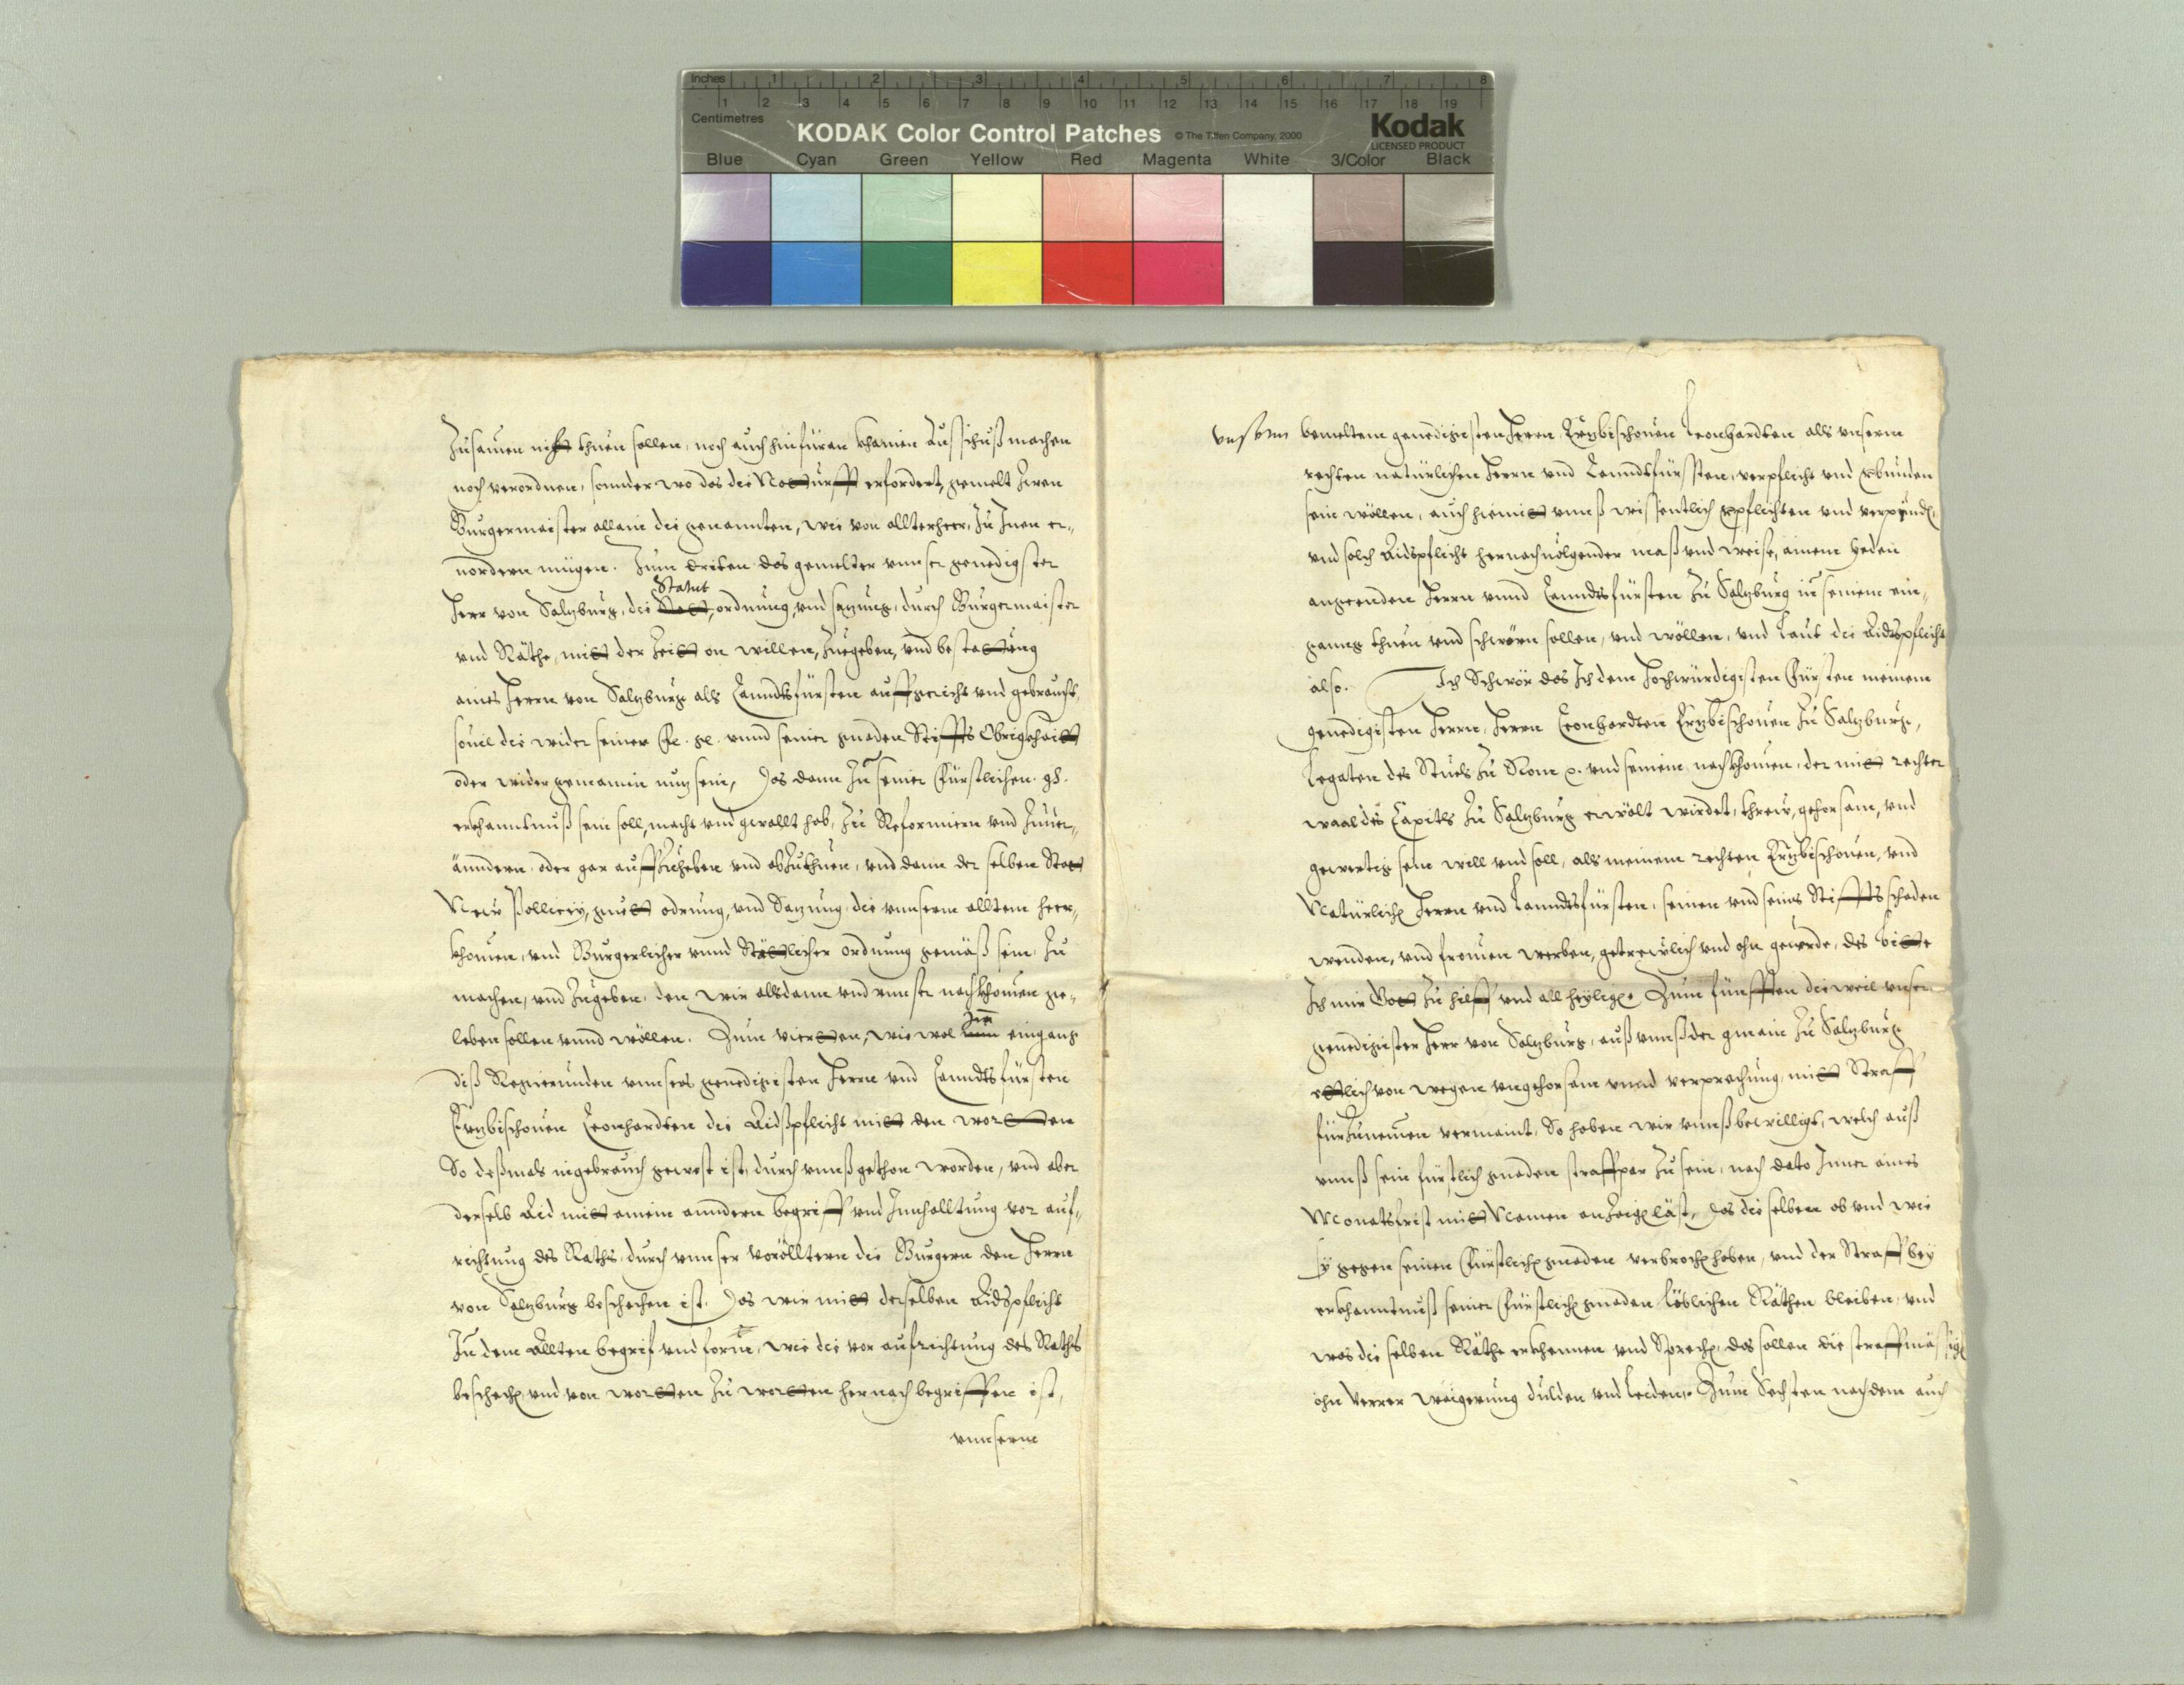 Inches 1 2 3 4 5 6 7 8
1 2 3 4 5 6 7 8 9 10 11 12 13 14 15 16 17 18 19
Centimetres
KODAK Color Control Patches © The Tiffen Company, 2000 Kodak
LICENSED PRODUCT
Blue Cyan Green Yellow Red Magenta White 3/Color Black
Zusamen nicht thuen sollen, noch auch hinfüran khainen Ausschuß machen
noch verordnen, sonnder wo das die Notturfft erfordert, gemelt Iren
Burgermaister allain die genannten, wie von allterheer, zu Inen er-
vordern mügen. Zum dritten das gemelter unnser genedigster
Statut
Herr von Salzburg, die ordnung, und sazung, durch Burgermaister
und Räthe, mitt der Zeitt on willen, Zuegeben, und bestettung
aines Herrn von Salzburg als Lanndtsfürsten auffgericht und gebraucht,
souil die wider seiner Fe. ge. unnd seiner gnaden Stiffts Obrigkhaitt
oder wider gemainen nuz sein, das dann Zu seiner Fürstlichen. gd.
erkhanntnuß sein soll, macht und gewallt hab, Zu Reformiern und Zuuer-
änndern oder gar auffzuheben und abzuthuen, und dann der selben Statt
New Pollicey, guett odnung, und Sazung die unnserm alltem heer-
khomen, und Burgerlicher unnd Stättlicher ordnung gemäß sein Zu
machen, und Zugeben, den wir allsdann und unnser nachkhomen ge-
leben sollen unnd wöllen. Zum vierdten, wie wol im eingang
diß Regierunden unnsers genedigisten Herrn und Lanndtsfürsten
Erzbischouen Leonhardten die Aidßpflicht mitt den wortten
So deßmals ingebrauch gewest ist, durch unnß gethon worden, und aber
derselb Aid mitt ainem anndern begriff und Innhalltung vor auf-
richtung des Raths durch unnser voröltern die Burgern den Herrn
von Salzburg beschechen ist. das wir mitt derselben Aidspflicht
In dem Allten begrif und form, wie die vor aufrichtung des Raths
beschech und von wortten Zu wortten hernach begriffen ist,
unnserm
unserm bemeltem genedigisten Herrn Erzbischouen Leonhardten alls unserm
rechten natürlichen Herrn und Lanndtsfürsten, verpflicht und verbunden
sein wöllen, auch hiemit unnß wissentlich verpflichten und verpünden,
und solch Aidspflicht hernachuolgender maß und weise, ainem yeden
angeenden Herrn unnd Lanndtsfürsten Zu Salzburg in seinem ein-
gang thuen und schwörn sollen, und wöllen, und Laut die Aidspflicht
also. Ich Schwör das Ich dem Hochwürdigisten Fürsten meinem
genedigisten Herrn, Herrn Leonhardten Erzbischouen Zu Salzburg,
Legaten des Stuels Zu Rom und seinem nachkhomen, der mitt rechter
waal des Capitls Zu Salzburg erwölt wirdet, threw, gehorsam, und
gewertig sein will und soll, als meinem rechten Erzbischouen, und
Natürlichen Herrn und Lanndtsfürsten, seinen und seins Stiffts schaden
wenden, und fromen werben, getrewlich und ohn geuerde, des bitte
Ich mir Gott Zu hilff und all heyligen. Zum fünfften die weil unser
genedigister Herr von Salzburg, auß unnß der gmain Zu Salzburg
ettlich von wegen ungehorsam unnd verprechung mitt Straff
fürzunemen vermaint, So haben wir unnß bewilligt, welch auß
unnß sein fürstlich gnaden straffpar zu sein, nach dato Inner aines
Monatsfrist mitt Namen anzaigen läst, das dieselben ob und wie
sy gegen seinen Fürstlichen gnaden verbrochen haben, und der Straff bey
erkhanntnuß seiner Fürstlichen gnaden löblichen Räthen bleiben, und
was die selben Räthe erkhennen und Sprechen, das sollen die straffmässigen
ohn verrer waigerung dulden und Leiden. Zum Sechsten nachdem auch